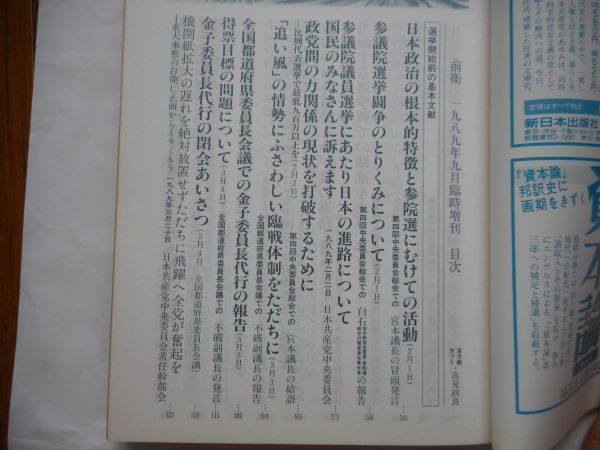 前衛 一九八九年九月臨時増刊 目次
目次題・カット 高見政良
選挙開始前の基本文献
日本政治の根本的特徴と参院選にむけての活動(2月1日)
第四回中央委員会総会での 宮本議長の冒頭発言 36
参議院選挙闘争のとりくみについて(2月1日)
第四回中央委員会総会での 白石の報告 58
参議院議員選挙にあたり日本の進路について
国民のみなさんに訴えます
一九八九年二月二日 日本共産党中央委員会 73
政党間の力関係の現状を打破するために
―比例代表選挙で最低九百万以上を(2月2日)
第四回中央委員会総会での 宮本議長の結語 85
「追い風」の情勢にふさわしい臨戦体制をただちに(3月3日)
全国都道府県委員長会議での 不破副議長の報告 94
全国都道府県委員長会議での金子委員長代行の報告(3月3日) 102
得票目標の問題について(3月4日)
全国都道府県委員長会議での 不破副議長の発言 115
金子委員長代行の閉会あいさつ(3月4日 全国都道府県委員長会議) 119
機関紙拡大の遅れを絶対放置せず、ただちに飛躍へ全党が奮起を
―重大事態の打開に正面からとりくもう 一九八九年三月二十日 日本共産党中央委員会常任幹部会 123
定価はすべて税込
新日本出版社
『資本論』
邦訳史に
画期をきずく
資本論